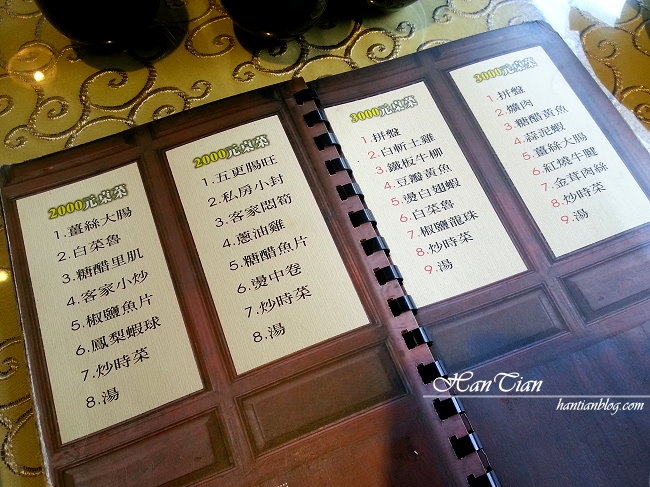 2000元桌菜
1.薑絲大腸
2.白菜魯
3.糖醋里肌
4.客家小炒
5.椒鹽魚片
6.鳳梨蝦球
7.炒時菜
8.湯
2000元桌菜
1.五更腸旺
2.私房小封
3.客家悶筍
4.蔥油雞
5.糖醋魚片
6.燙中卷
7.炒時菜
8.湯
3000元桌菜
1.拼盤
2.白斬土雞
3.鐵板牛柳
4.豆瓣黃魚
5.燙白翅蝦
6.白菜魯
7.椒鹽龍珠
8.炒時菜
9.湯
3000元桌菜
1.拼盤
2.爌肉
3.糖醋黃魚
4.蒜泥蝦
5.薑絲大腸
6.紅燒牛腱
7.金茸肉絲
8.炒時菜
9.湯
HanTian
hantianblog.com